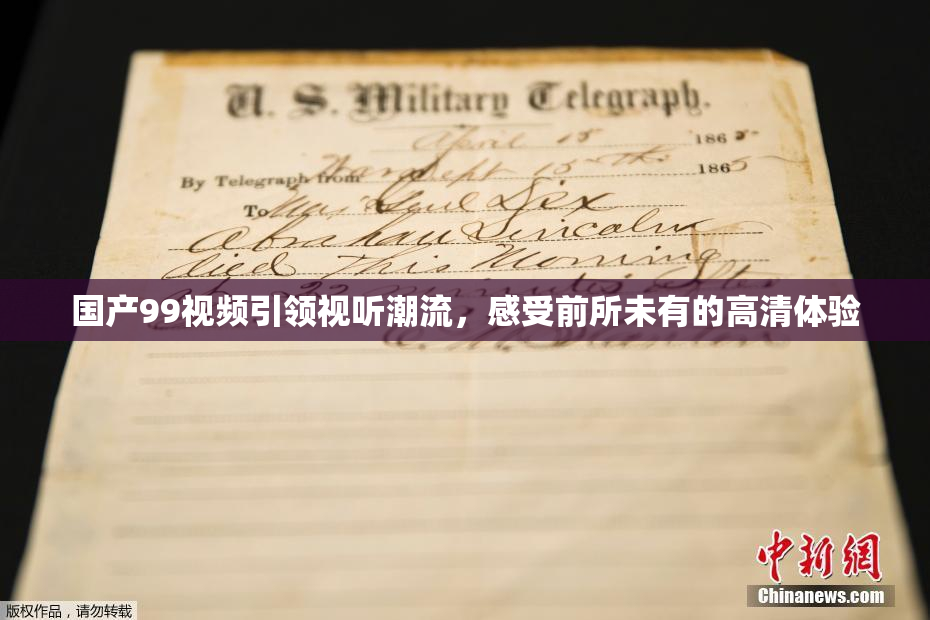 U. S. Military Telegraph.
April 15 1865
By Telegraph from War Dept 15th 1865
To Maj Genl Dix
Abraham Lincoln
died This Morning
at 22 minutes after
国产99视频引领视听潮流，感受前所未有的高清体验
E. M. Stanton
中新网
Chinanews.com
版权作品，请勿转载